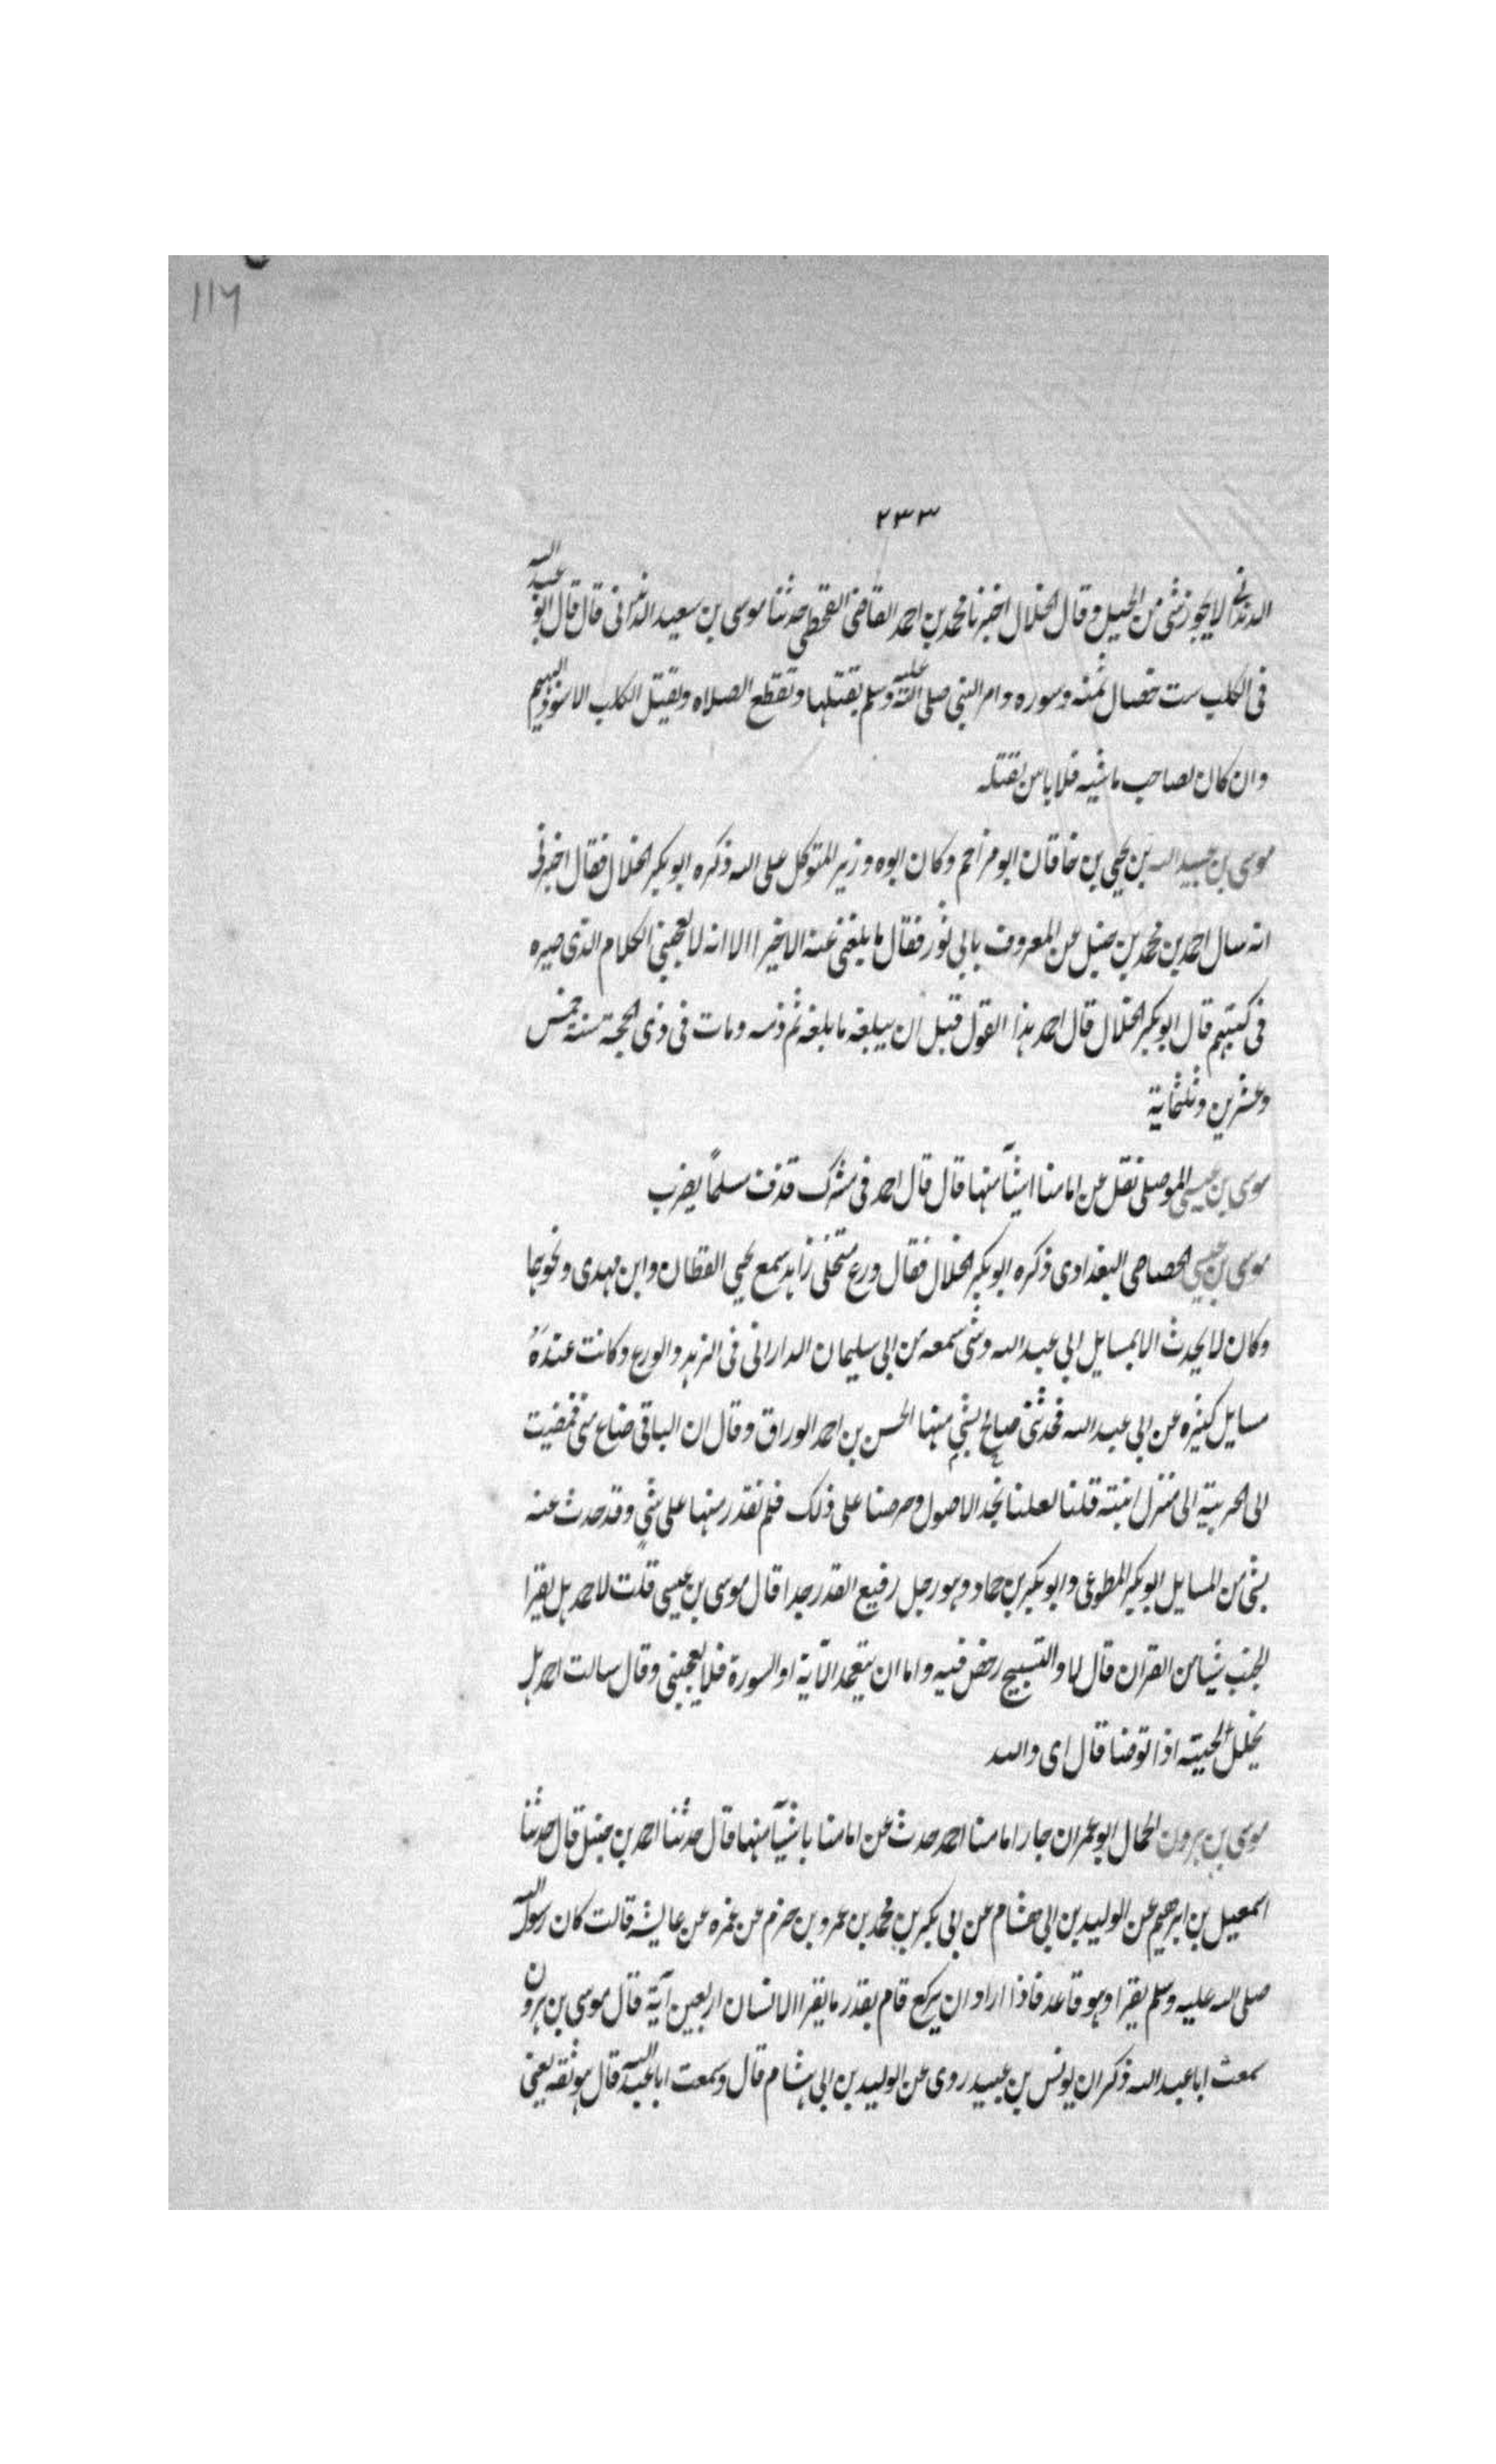 ١١٦
٢٣٣
الدندانی لا یجوز شی من الحیل وقال الخلال اخبرنا محمد بن احمد القاضی القحطبی حدثنا موسی بن سعید الدندانی قال قال ابو عبد الله
فی الکلب ست خصال ثمنه وسوره وامر النبی صلی الله علیه وسلم بقتلها وتقطع الصلاه ویقتل الکلب الاسود البهیم
وان کان لصاحب ماشیه فلا باس بقتله
موسی بن عبید الله بن یحیی بن خاقان ابو مزاحم وکان ابوه وزیر المتوکل علی الله ذکره ابو بکر الخلال فقال اخبرنی
انه سال احمد بن محمد بن حنبل عن المعروف بابی ثور فقال ما بلغنی عنه الا خیرا الا انه لا یعجبنی الکلام الذی صیره
فی کتبهم قال ابو بکر الخلال قال احمد هذا القول قبل ان یبلغه ما بلغه ثم ذمه ومات فی ذی الحجة سنة خمس
وعشرین وثلثمایة
موسی بن عیسی الموصلی نقل عن امامنا اشیآ منها قال قال احمد فی مشرک قذف مسلمًا یضرب
موسی بن عیسی الجصاص البغدادی ذکره ابو بکر الخلال فقال ورع متخلی زاهد سمع یحیی القطان وابن مهدی ونحوهما
وکان لا یحدث الا بمسایل ابی عبد الله وشی سمعه من ابی سلیمان الدارانی فی الزهد والورع وکانت عنده
مسایل کثیره عن ابی عبد الله فحدثنی صالح بشی منها الحسن بن احمد الوراق وقال ان الباقی ضاع منی فمضیت
الی الحربیة الی منزل ابنته قلنا لعلنا نجد الاصول وحرصنا علی ذلک فلم نقدر منها علی شی وقد حدث عنه
بشی من المسایل ابو بکر المطوعی وابو بکر بن حماد وهو رجل رفیع القدر جدا قال موسی بن عیسی قلت لاحمد هل یقرا
الجنب شیا من القران قال لا والتسبیح رخص فیه واما ان یتعمد الآیة او السورة فلا یعجبنی وقال سالت احمد هل
یخلل لحیته اذا توضا قال ای والله
موسی بن هرون الحمال ابو عمران جار امامنا احمد حدث عن امامنا باشیآ منها قال حدثنا احمد بن حنبل قال حدثنا
اسمعیل بن ابرهیم عن الولید بن ابی هشام عن ابی بکر بن محمد بن عمرو بن حزم عن عمره عن عایشه قالت کان رسول الله
صلی الله علیه وسلم یقرا وهو قاعد فاذا اراد ان یرکع قام بقدر ما یقرا الانسان اربعین آیة قال موسی بن هرون
سمعت ابا عبد الله ذکر ان یونس بن عبید روی عن الولید بن ابی هشام قال وسمعت ابا عبد الله قال هو ثقه یعنی